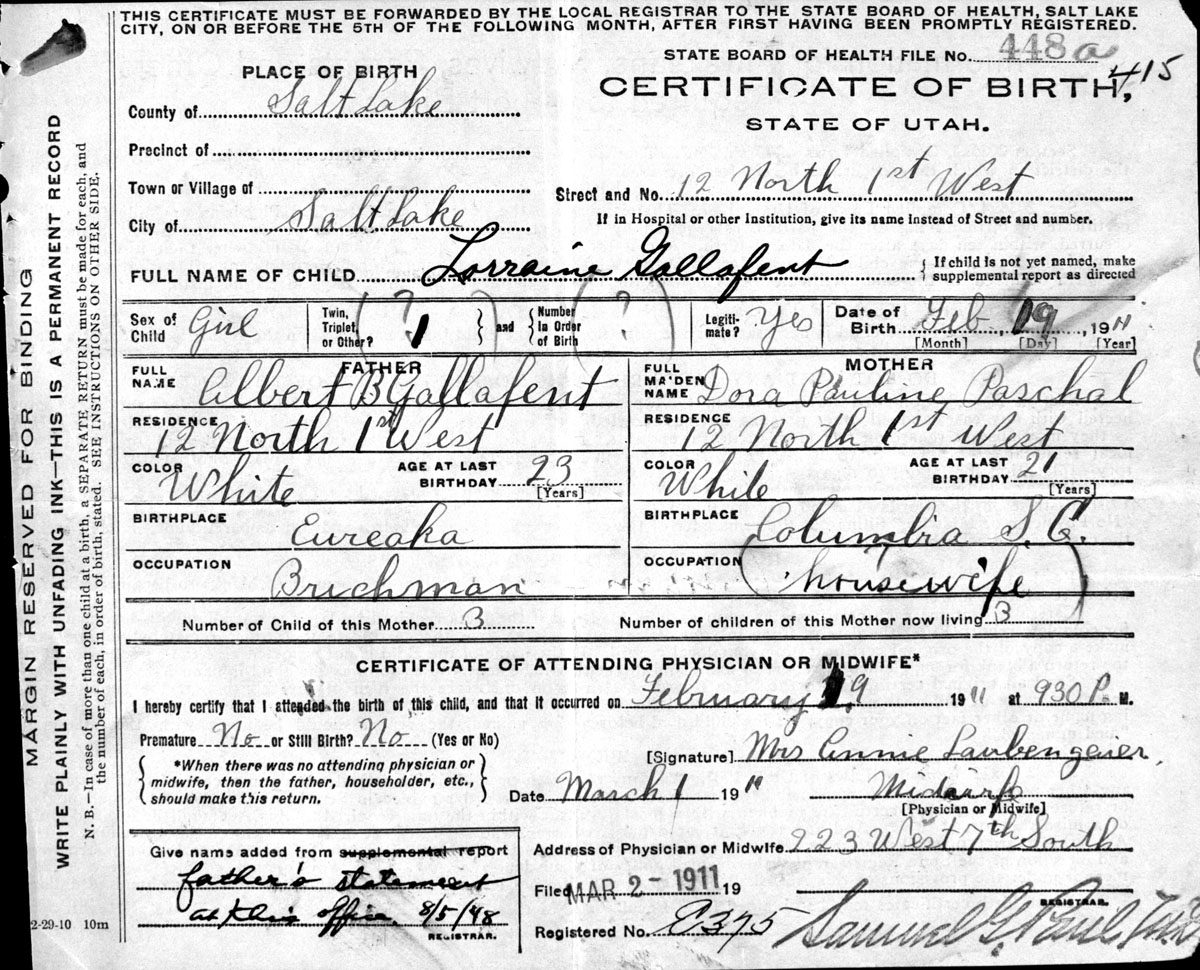 THIS CERTIFICATE MUST BE FORWARDED BY THE LOCAL REGISTRAR TO THE STATE BOARD OF HEALTH, SALT LAKE
CITY, ON OR BEFORE THE 5TH OF THE FOLLOWING MONTH, AFTER FIRST HAVING BEEN PROMPTLY REGISTERED.
STATE BOARD OF HEALTH FILE No. 448a
415
PLACE OF BIRTH
CERTIFICATE OF BIRTH,
STATE OF UTAH.
County of Salt Lake
Precinct of
Town or Village of
Street and No. 12 North 1st West
City of Salt Lake
If in Hospital or other Institution, give its name instead of Street and number.
FULL NAME OF CHILD Lorraine Gallafent
{ If child is not yet named, make
supplemental report as directed
Sex of Child Girl
Twin, Triplet, or Other? (? 1) } and { Number in Order of Birth (?)
Legiti-mate? Yes
Date of Birth Feb, 19, 1911
[Month] [Day] [Year]
FATHER
FULL NAME Albert B Gallafent
RESIDENCE 12 North 1st West
COLOR White AGE AT LAST BIRTHDAY 23
[Years]
BIRTHPLACE Eureaka
OCCUPATION Brickman
MOTHER
FULL MA'DEN NAME Dora Pauline Paschal
RESIDENCE 12 North 1st West
COLOR White AGE AT LAST BIRTHDAY 21
[Years]
BIRTHPLACE Columbia S. C.
OCCUPATION (housewife)
Number of Child of this Mother 3 Number of children of this Mother now living 3
CERTIFICATE OF ATTENDING PHYSICIAN OR MIDWIFE*
I hereby certify that I attended the birth of this child, and that it occurred on February 19 1911 at 930 P. M.
Premature No or Still Birth? No (Yes or No)
{ *When there was no attending physician or
midwife, then the father, householder, etc.,
should make this return. }
[Signature] Mrs Annie
Date March 1 1911 Midwife
[Physician or Midwife]
Give name added from supplemental report
father's statement
at this office, 8/5/48
REGISTRAR.
Address of Physician or Midwife 223 West 7th South
Filed MAR 2 - 1911 19
REGISTRAR.
Registered No. C375 Samuel G. Paul
2-29-10 10m
MARGIN RESERVED FOR BINDING
WRITE PLAINLY WITH UNFADING INK—THIS IS A PERMANENT RECORD
N. B.—In case of more than one child at a birth, a SEPARATE RETURN must be made for each, and
the number of each, in order of birth, stated. SEE INSTRUCTIONS ON OTHER SIDE.